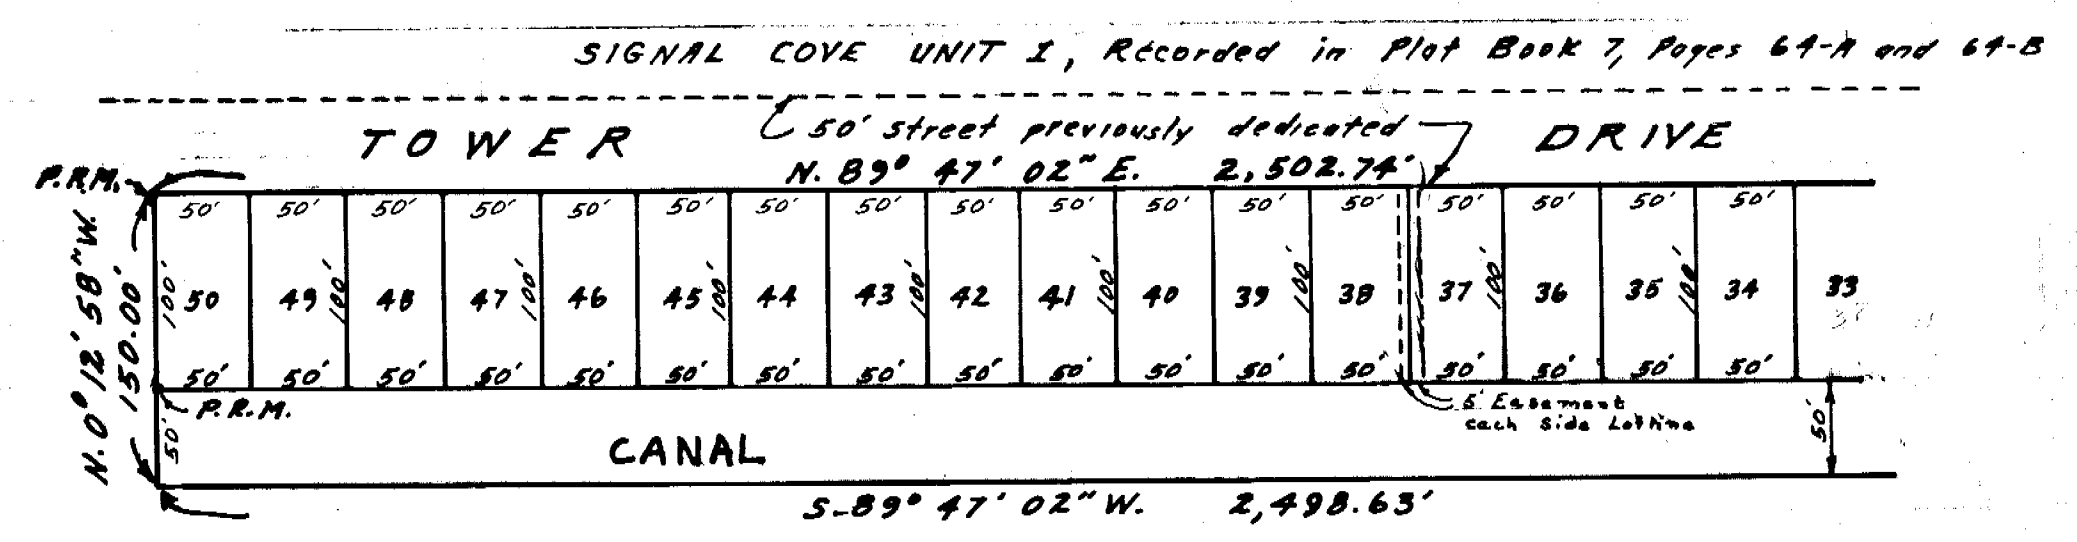 SIGNAL COVE UNIT 1, Recorded in Plat Book 7, Pages 64-A and 64-B
TOWER 50' Street previously dedicated DRIVE
P.R.M. N. 89° 47' 02" E. 2,502.74'
50' 50' 50' 50' 50' 50' 50' 50' 50' 50' 50' 50' 50' 50' 50' 50' 50'
N. 0° 12' 58" W.
150.00'
100' 50 49 100' 48 47 100' 46 45 100' 44 43 100' 42 41 100' 40 39 100' 38 37 100' 36 35 100' 34 33
50' 50' 50' 50' 50' 50' 50' 50' 50' 50' 50' 50' 50' 50' 50' 50' 50'
P.R.M.
5' Easement
each side Lot line
50' CANAL 50'
S-89° 47' 02" W. 2,498.63'